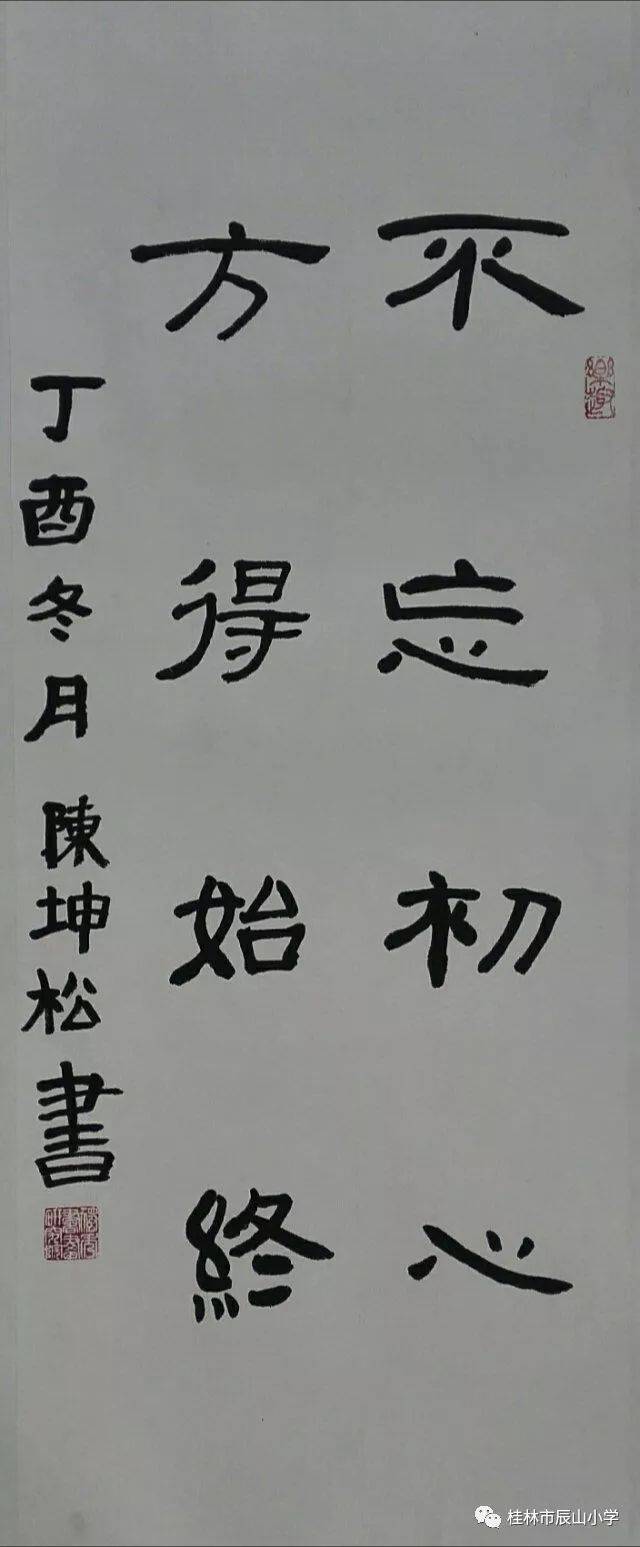 不忘初心
方得始終
丁酉冬月 陳坤松書
桂林市辰山小学